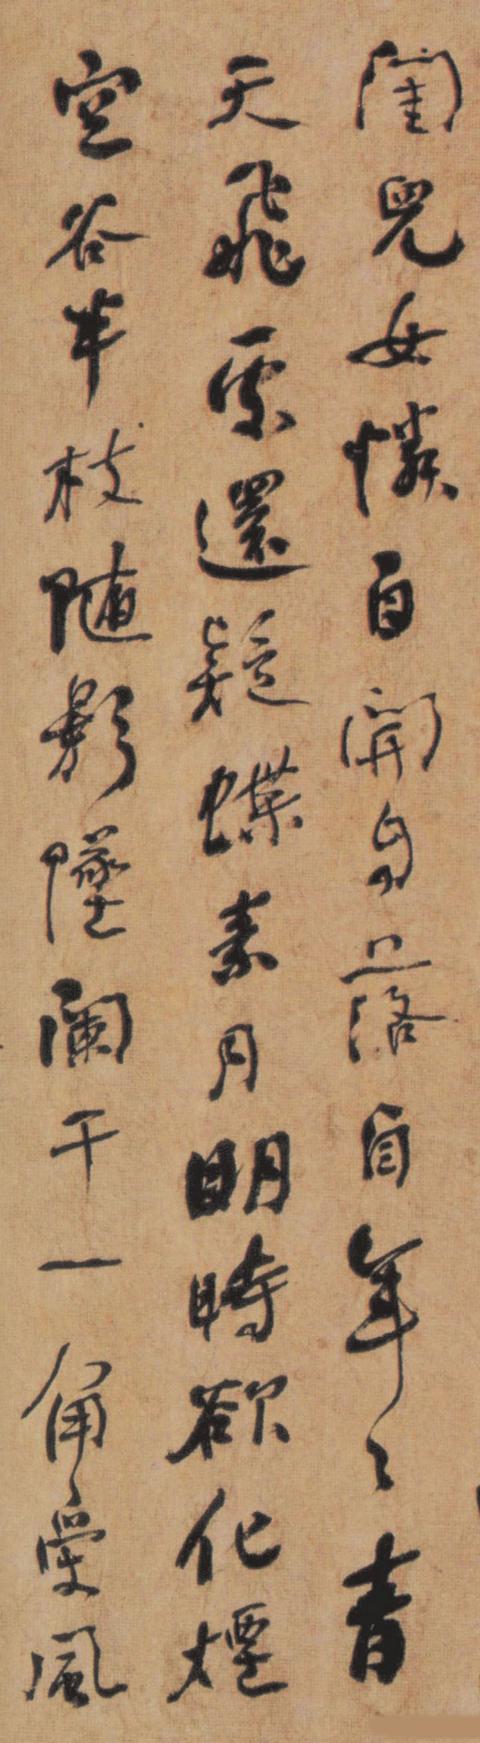 闺兒女憐自開自落自年々青
天飛處還疑蝶素月明時欲化煙
空谷半枝隨影墜闌干一角受風